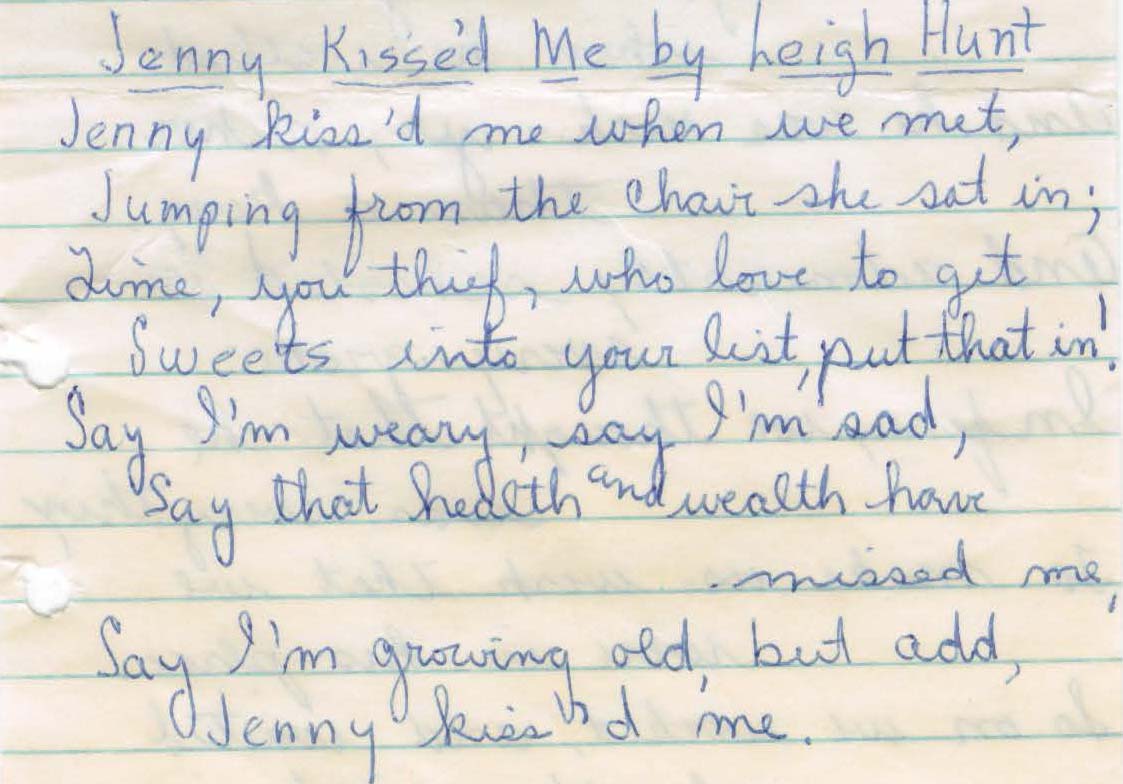 Jenny Kisse'd Me by Leigh Hunt
Jenny kiss'd me when we met,
Jumping from the Chair she sat in;
Time, you thief, who love to get
Sweets into your list, put that in!
Say I'm weary, say I'm sad,
Say that health and wealth have
missed me,
Say I'm growing old, but add,
Jenny kiss'd me.